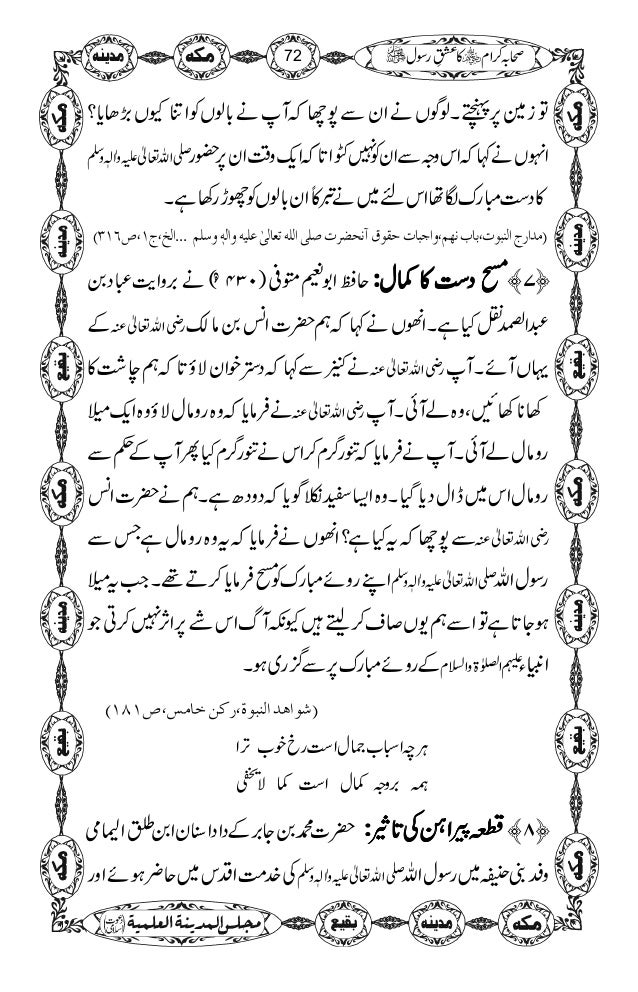 صحابہ کرام ﷺ کا عشق رسول ﷺ
72
مکہ
مدینہ
تو زمین پر پہنچتے۔ لوگوں نے ان سے پوچھا کہ آپ نے بالوں کو اتنا کیوں بڑھایا؟
انہوں نے کہا کہ اس وجہ سے ان کو نہیں کٹواتا کہ ایک وقت ان پر حضور صلی اللہ تعالیٰ علیہ والہٖ وسلم
کا دست مبارک لگا تھا اس لئے میں نے تبرکاً ان بالوں کو چھوڑ رکھا ہے۔
(مدارج النبوت،باب نهم،واجبات حقوق آنحضرت صلی الله تعالیٰ علیه واله وسلم ...الخ،ج۱،ص۳۱٦)
﴿۷﴾ مسح دست کا کمال: حافظ ابونعیم متوفی (۴۳۰ھ) نے بروایت عباد بن
عبدالصمد نقل کیا ہے۔ انھوں نے کہا کہ ہم حضرت انس بن مالک رضی اللہ تعالیٰ عنہ کے
یہاں آئے۔ آپ رضی اللہ تعالیٰ عنہ نے کنیز سے کہا کہ دسترخوان لاؤ تا کہ ہم چاشت کا
کھانا کھائیں، وہ لے آئی۔ آپ رضی اللہ تعالیٰ عنہ نے فرمایا کہ وہ رومال لاؤ وہ ایک میلا
رومال لے آئی۔ آپ نے فرمایا کہ تنور گرم کر اس نے تنور گرم کیا پھر آپ کے حکم سے
رومال اس میں ڈال دیا گیا۔ وہ ایسا سفید نکلا گویا کہ دودھ ہے۔ ہم نے حضرت انس
رضی اللہ تعالیٰ عنہ سے پوچھا کہ یہ کیا ہے؟ انھوں نے فرمایا کہ یہ وہ رومال ہے جس سے
رسول اللہ صلی اللہ تعالیٰ علیہ والہٖ وسلم اپنے روئے مبارک کو مسح فرمایا کرتے تھے۔ جب یہ میلا
ہو جاتا ہے تو اسے ہم یوں صاف کر لیتے ہیں کیونکہ آگ اس شے پر اثر نہیں کرتی جو
انبیاء علیہم الصلوٰۃ والسلام کے روئے مبارک پر سے گزری ہو۔
(شواهد النبوة،رکن خامس،ص۱۸۱)
ہرچہ اسباب جمال است رخ خوب ترا
ہمہ بروجہ کمال است کما لایخفی
﴿۸﴾ قطعہ پیراہن کی تاثیر: حضرت محمد بن جابر کے دادا سنان ابن طلق الیمامی
وفد بنی حنیفہ میں رسول اللہ صلی اللہ تعالیٰ علیہ والہٖ وسلم کی خدمت اقدس میں حاضر ہوئے اور
مکہ
مدینہ
بقیع
مکہ
مدینہ
بقیع
مکہ
مکہ
مدینہ
بقیع
مکہ
مدینہ
بقیع
مکہ
مکہ
مدینہ
بقیع
مجلس المدينة العلمية